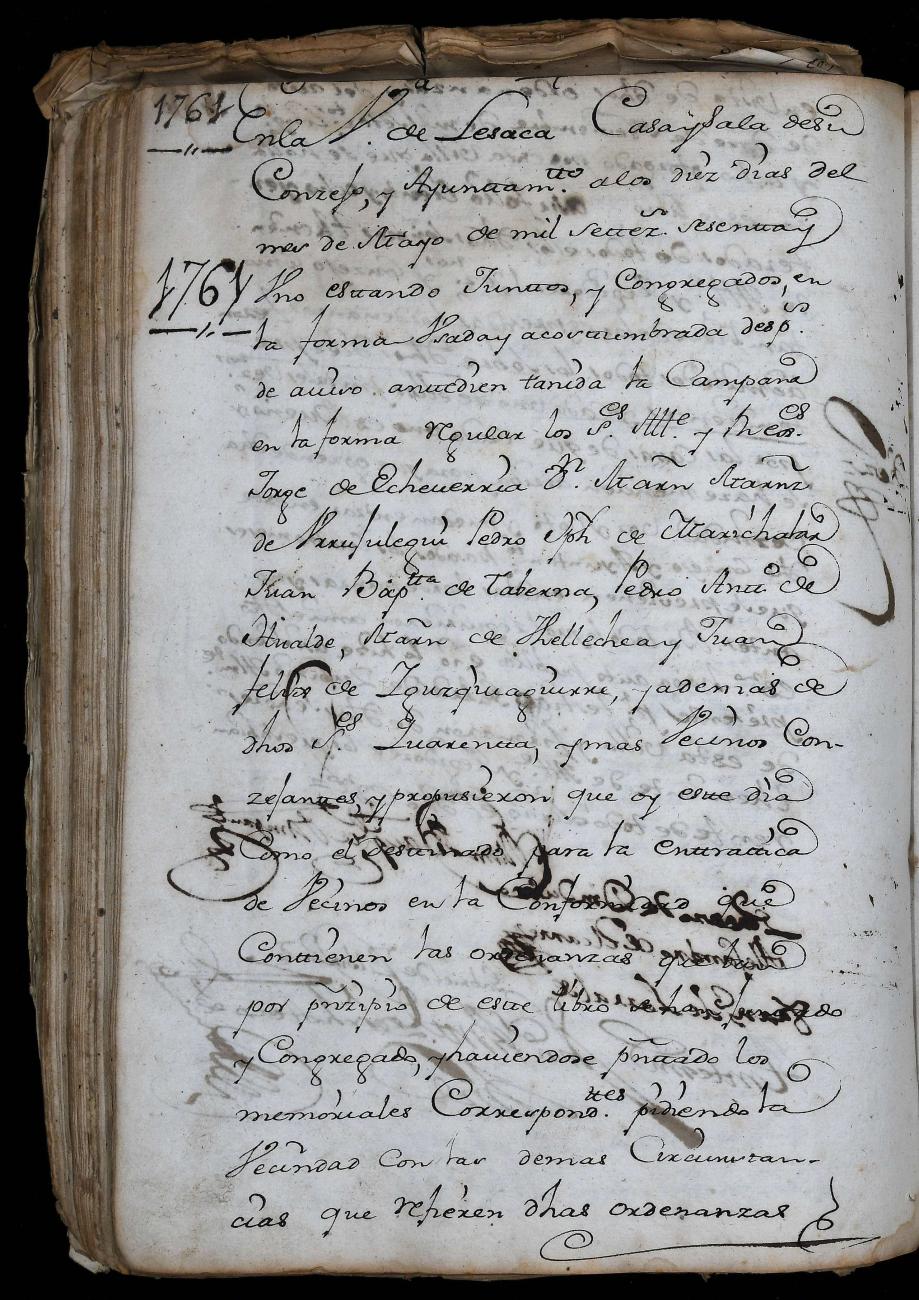 1761
En la V.ª de Lesaca Casa y Sala de su
Conzejo, y Ayunttam.tto a los diez dias del
mes de Mayo de mil settez.s sesentta y
1761
Vno esttando Junttos, y Congregados, en
la forma Vsada y acosttumbrada desp.s
de auiso antedien tanida la Campana
en la forma regular los S.es Alt.e y Reg.es
Jorge de Echeuerria D.n Marñ Marñz
de Arrusulegui Pedro Jph de Marichalar
Juan Bap.tta de Taberna, Pedro Antt.o de
Hualde, Marñ de Thellechea y Juan
felix de Yguzquiaguirre, y ademas de
dhos S.es Quarentta, y mas Vecinos Con-
zejanttes, y propusieron que oy estte dia
Como el Desttinado para la enttratica
de Vecinos en la Conformidad que
Conttienen las ordenanzas que
por prñzipio de estte libro
y Congregado, y hauiendose prñttado los
memoriales Correspond.ttes pidiendo la
Vecindad con las demas Circunstan-
cias que refieren dhas ordenanzas